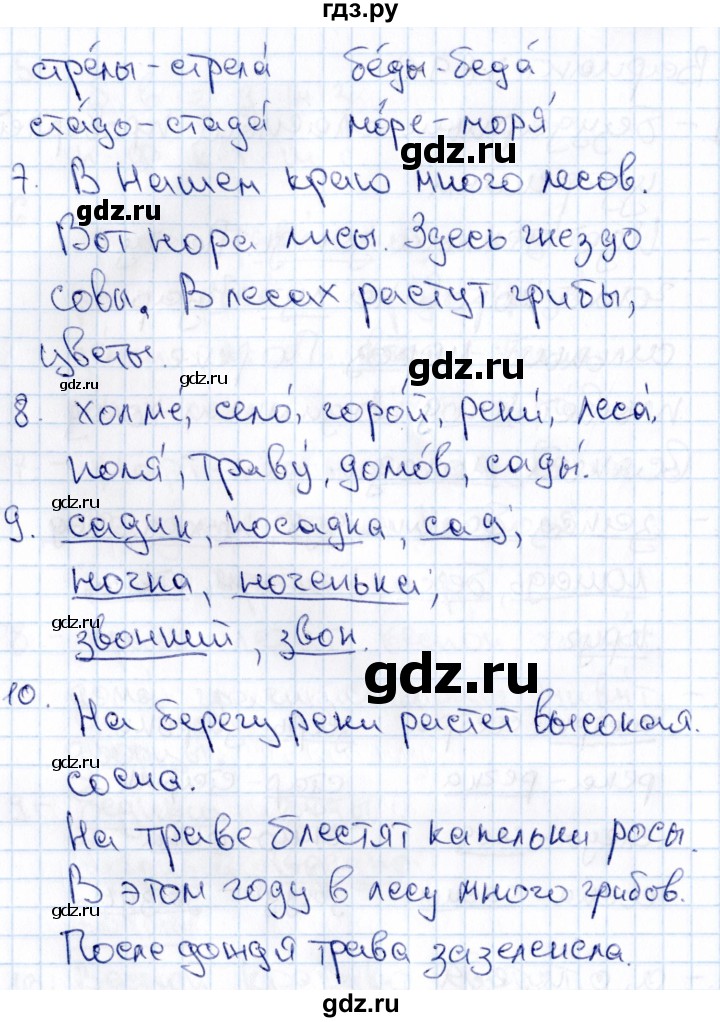 гдз.ру
стре́лы - стрела́ бе́ды - беда́
ста́до - стада́ мо́ре - моря́
7. В нашем краю много лесов.
Вот нора лисы. Здесь гнездо
совы. В лесах растут грибы,
цветы.
8. холме́, село́, горо́й, реки́, леса́,
поля́, траву́, домо́в, сады́.
9. садик, посадка, сад;
ночка, ноченька;
звонкий, звон.
10. На берегу реки растет высокая
сосна.
На траве блестят капельки росы.
В этом году в лесу много грибов.
После дождя трава зазеленела.
gdz.ru
gdz.ru
gdz.ru
gdz.ru
gdz.ru
gdz.ru
gdz.ru
gdz.ru
gdz.ru
gdz.ru
gdz.ru
gdz.ru
gdz.ru